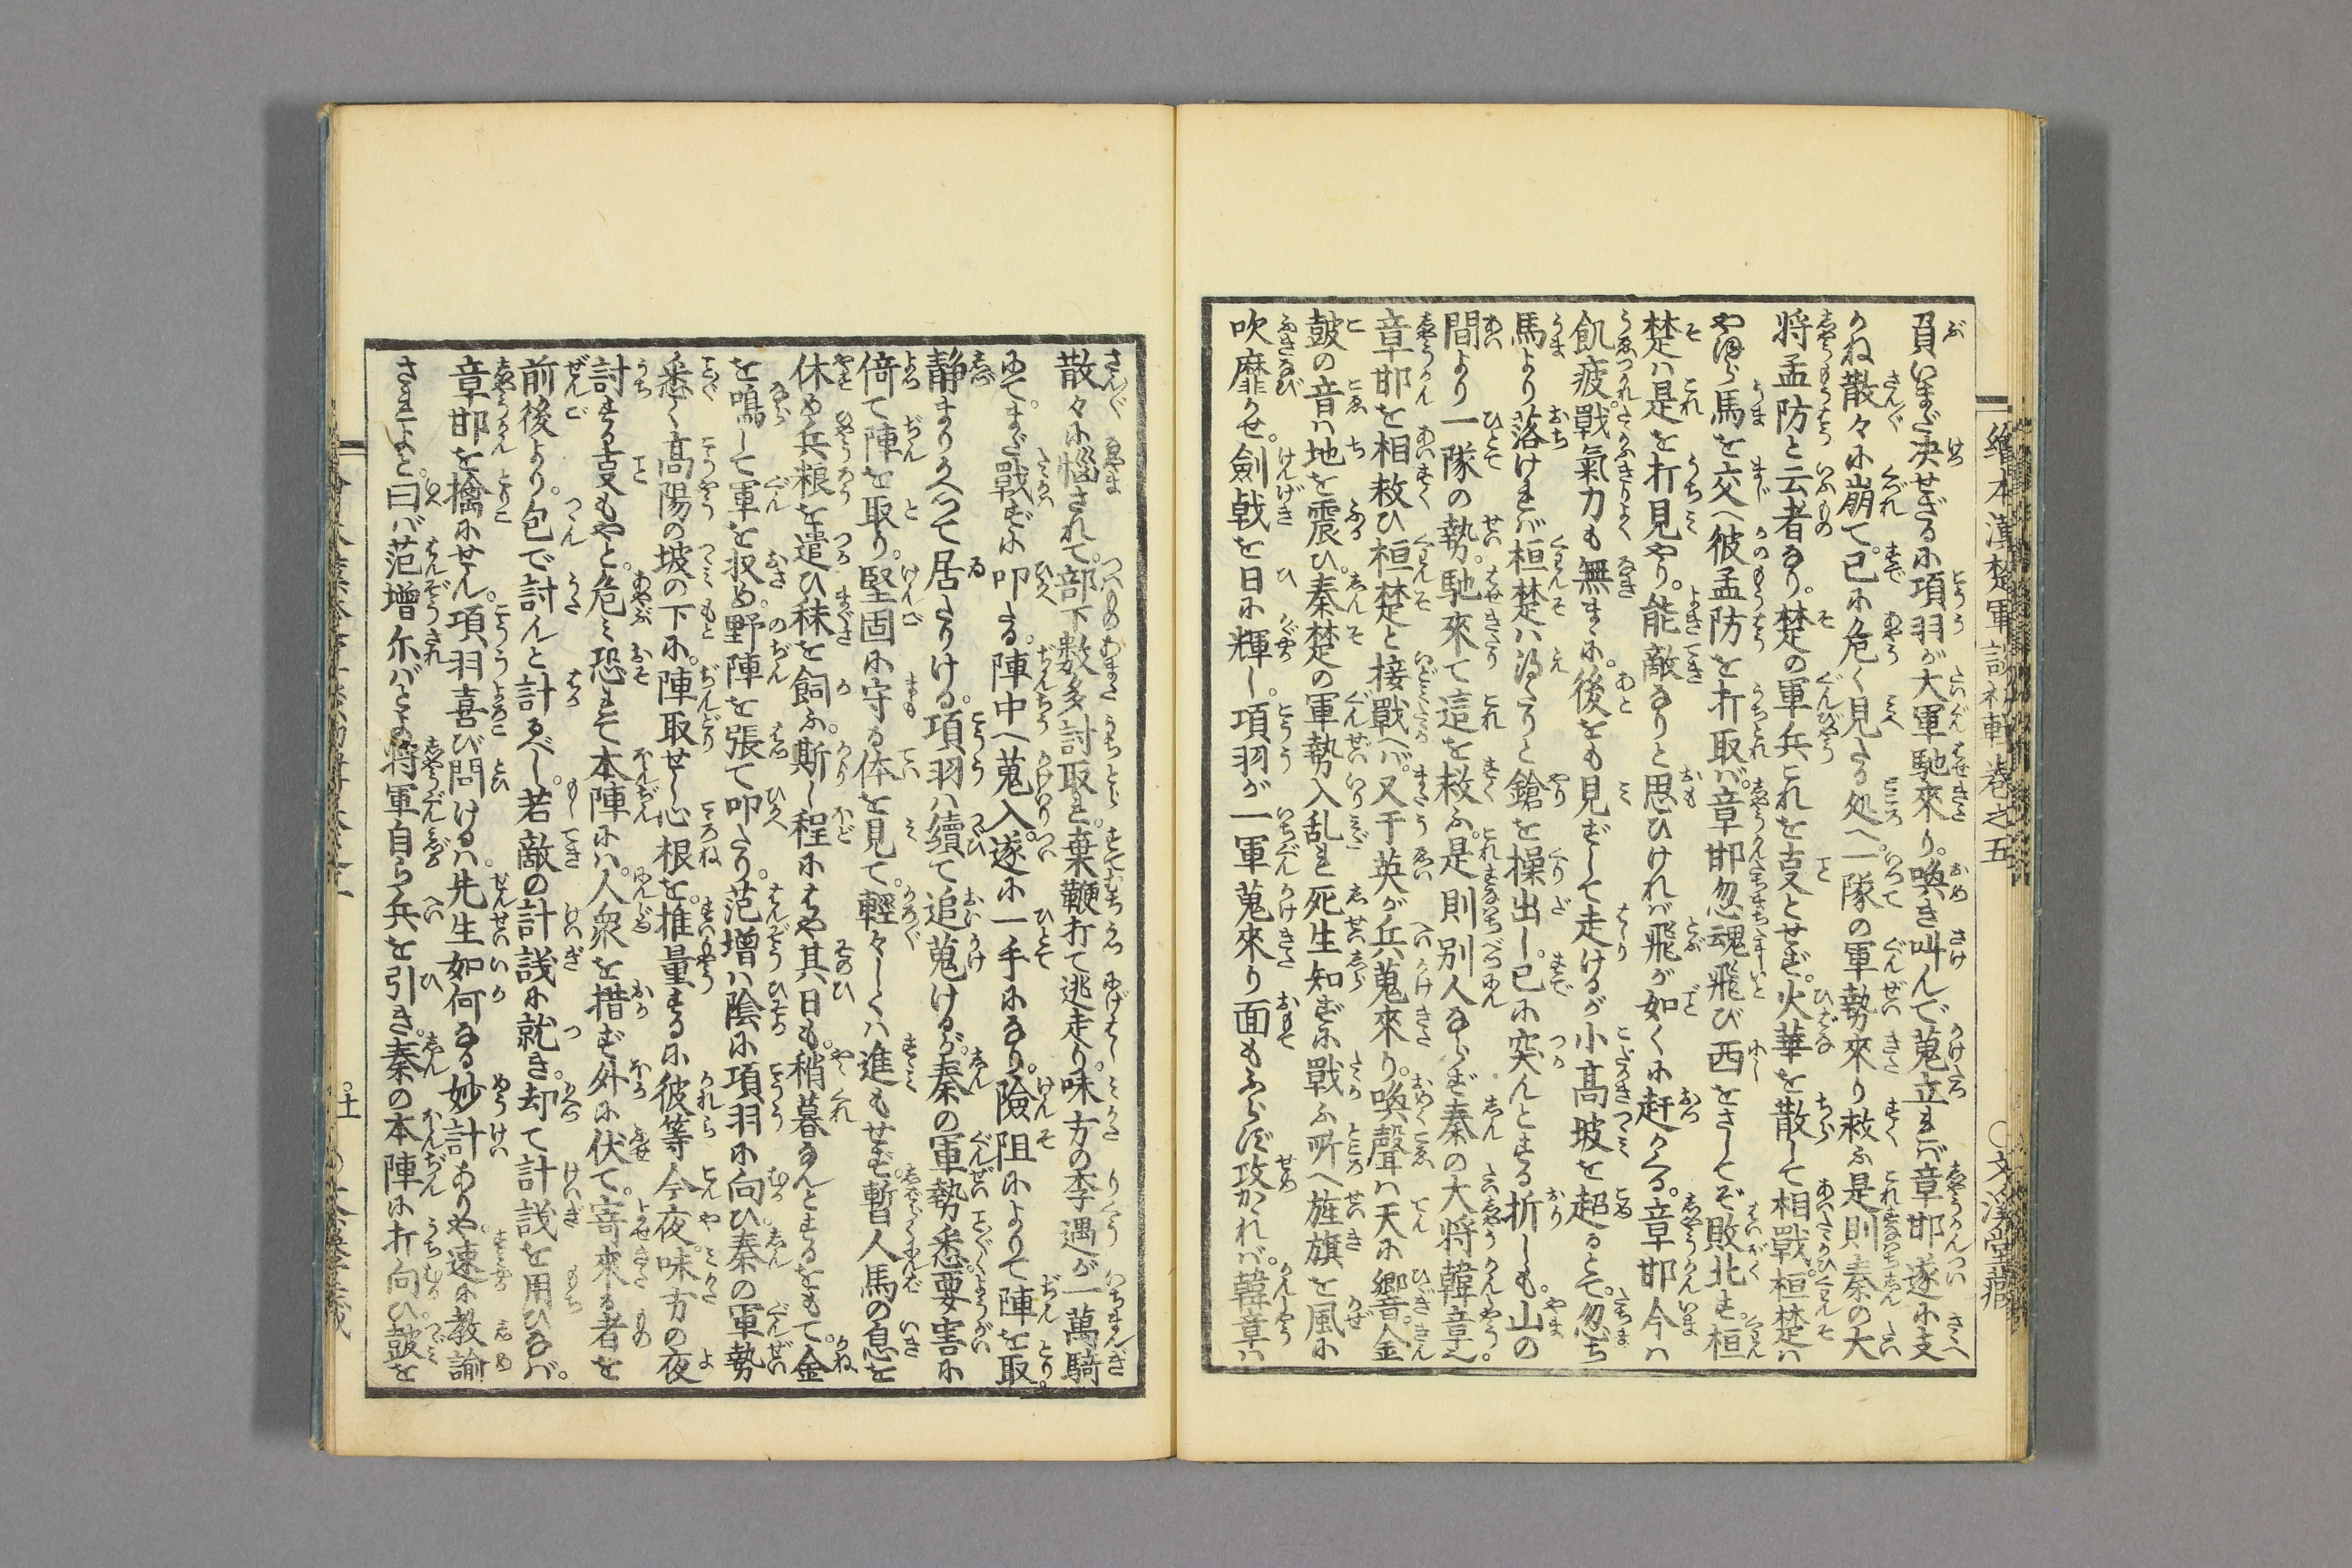 負いまだ決せざるに項羽が大軍馳來り。喚き叫んで蒐立れば章邯遂に支
かね散々に崩て。已に危く見たる処へ。一隊の軍勢來り救ふ是則秦の大
将孟防と云者なり。楚の軍兵これを支とせず。火華を散して相戰。桓楚ハ
やはら馬を交へ彼孟防を打取バ。章邯忽魂飛び西をさしてぞ敗北す。桓
楚ハ是を打見やり。能敵なりと思ひけれバ飛が如くに赶かくる。章邯今ハ
飢疲。戰氣力も無まゝに。後をも見ずして走けるが小高坡を超るとて。忽ち
馬より落けれバ。桓楚ハ得たりと鎗を操出し。已に突んとする折しも。山の
間より一隊の勢。馳來て這を救ふ。是則別人ならず秦の大将韓章也。
章邯を相救ひ桓楚と接戰へバ。又于英が兵蒐來り。喚聲ハ天に響。金
皷の音ハ地を震ひ。秦楚の軍勢入乱れ死生知ずに戰ふ所へ旌旗を風に
吹靡かせ。劍戟を日に輝し。項羽が一軍蒐來り面もふらず攻かれバ。韓章ハ
繪本漢楚軍談初輯巻之五
○文溪堂藏
散々に惱されて。部下数多討取れ。棄鞭打て逃走り。味方の李遇が一萬騎
にて。まだ戰ずに叩たる。陣中へ蒐入。遂に一手になり。險阻によりて陣を取
静まりかへつて居たりける。項羽ハ續て追蒐けるが。秦の軍勢悉。要害に
倚て陣を取り。堅固に守る体を見て。輕々しくハ進もせず。暫人馬の息を
休め兵粮を遣ひ秣を飼ふ。斯し程にはや其日も。稍暮なんとするをもて。金
を鳴して軍を収め。野陣を張て叩たり。范増ハ陰に項羽に向ひ。秦の軍勢
悉く高陽の坡の下に。陣取せし心根を。推量するに彼等今夜。味方の夜
討する叓もやと。危ミ恐れて本陣にハ。人衆を措ず外に伏て。寄來る者を
前後より。包で討んと計るべし。若敵の計議に就き。却て計議を用ひなバ。
章邯を擒にせん。項羽喜び問けるハ。先生如何なる妙計ありや。速に教諭
されよと。曰バ范増尓バとよ将軍自ら兵を引き。秦の本陣に打向ひ。皷を
○十一